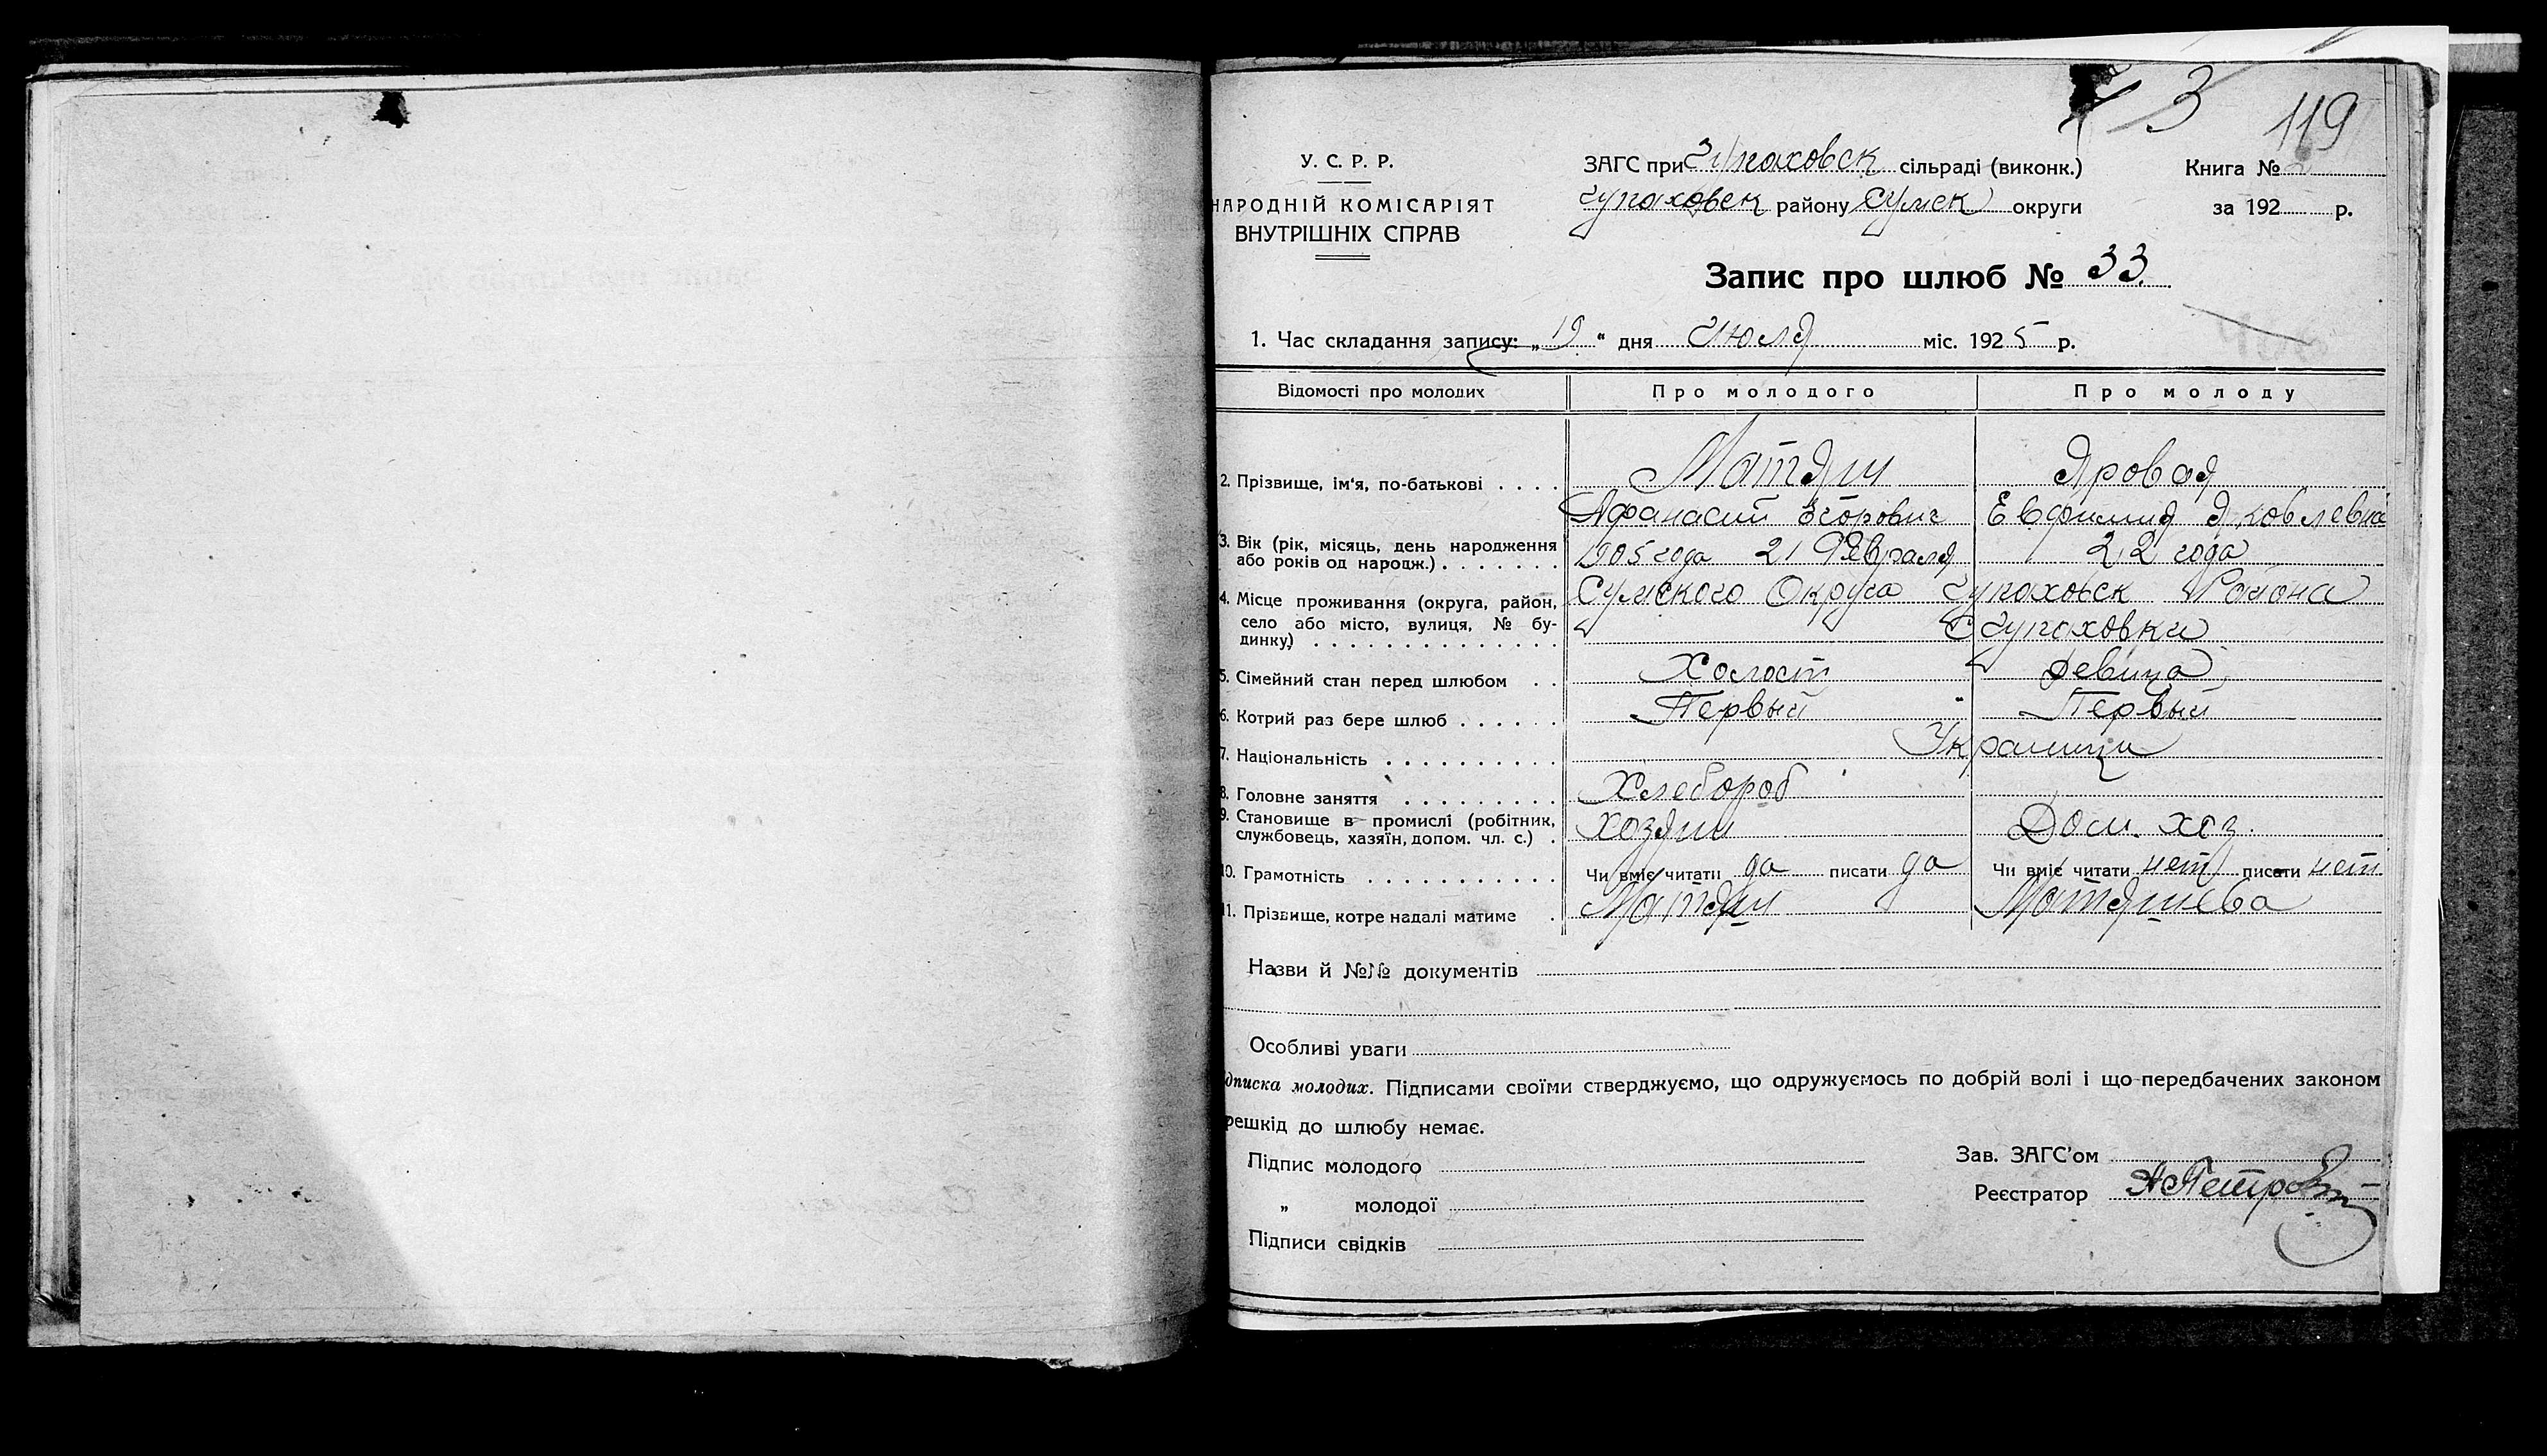 3
119
У. С. Р. Р.
НАРОДНІЙ КОМІСАРІЯТ
ВНУТРІШНІХ СПРАВ
ЗАГС при Чупаховск сільраді (виконк.)
Чупаховск району Сумск округи
Книга №
за 192 р.
Запис про шлюб № 33.
1. Час складання запису: „19“ дня Июля міс. 1925 р.
Відомості про молодих Про молодого Про молоду
2. Прізвище, ім'я, по-батькові . . . . Матяш Яровая
Афанасий Егорович Евфимия Яковлевна
3. Вік (рік, місяць, день народження
або років од народж.) . . . . . . . 1905 года 21 Февраля 22 года
4. Місце проживання (округа, район,
село або місто, вулиця, № бу-
динку) . . . . . . . . . . . . . .
Сумского Округа Чупаховск Района
С Чупаховки
5. Сімейний стан перед шлюбом . . Холост девица
6. Котрий раз бере шлюб . . . . . . Первый Первый
7. Національність . . . . . . . . . . Украинци
8. Головне заняття . . . . . . . . . Хлебороб
9. Становище в промислі (робітник,
службовець, хазяїн, допом. чл. с.) . хозяин Дом. хоз.
10. Грамотність . . . . . . . . . . . Чи вміє читати да писати да Чи вміє читати нет писати нет
11. Прізвище, котре надалі матиме . Матяш Матяшева
Назви й №№ документів
Особливі уваги
дписка молодих. Підписами своїми стверджуємо, що одружуємось по добрій волі і що передбачених законом
решкід до шлюбу немає.
Підпис молодого
„ молодої
Підписи свідків
Зав. ЗАГС'ом
Реєстратор АПетров